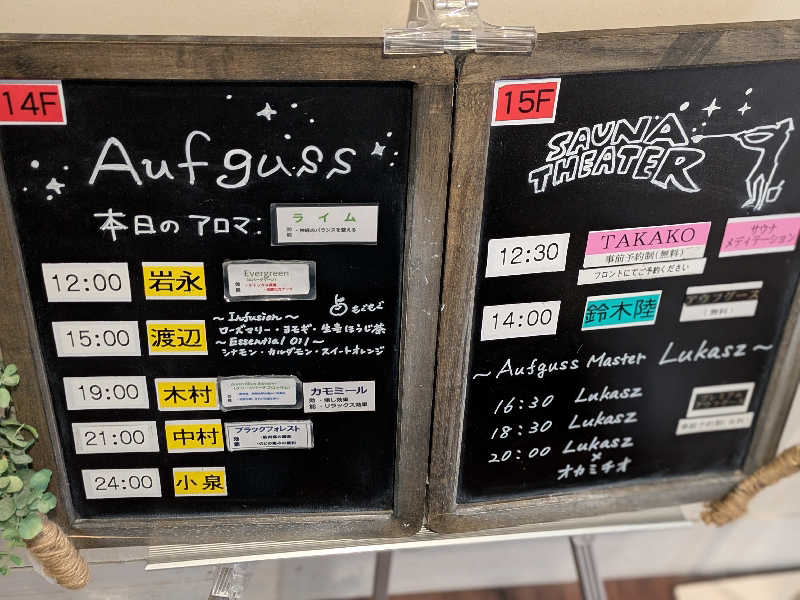 14F
Aufguss
本日のアロマ:
ライム
効能
・神経のバランスを整える
12:00 岩永
Evergreen
もぐもぐ
15:00 渡辺
~ Infusion ~
ローズマリー・ヨモギ・生姜ほうじ茶
~ Essential Oil ~
シナモン・カルダモン・スイートオレンジ
19:00 木村
カモミール
効能
・癒し効果
・リラックス効果
21:00 中村
ブラックフォレスト
24:00 小泉
15F
SAUNA
THEATER
12:30 TAKAKO
事前予約制(無料)
フロントにてご予約ください
サウナ
メディテーション
14:00 鈴木陸
アウフグース
(無料)
~ Aufguss Master Lukasz ~
16:30 Lukasz
18:30 Lukasz
20:00 Lukasz
×
オカミチオ